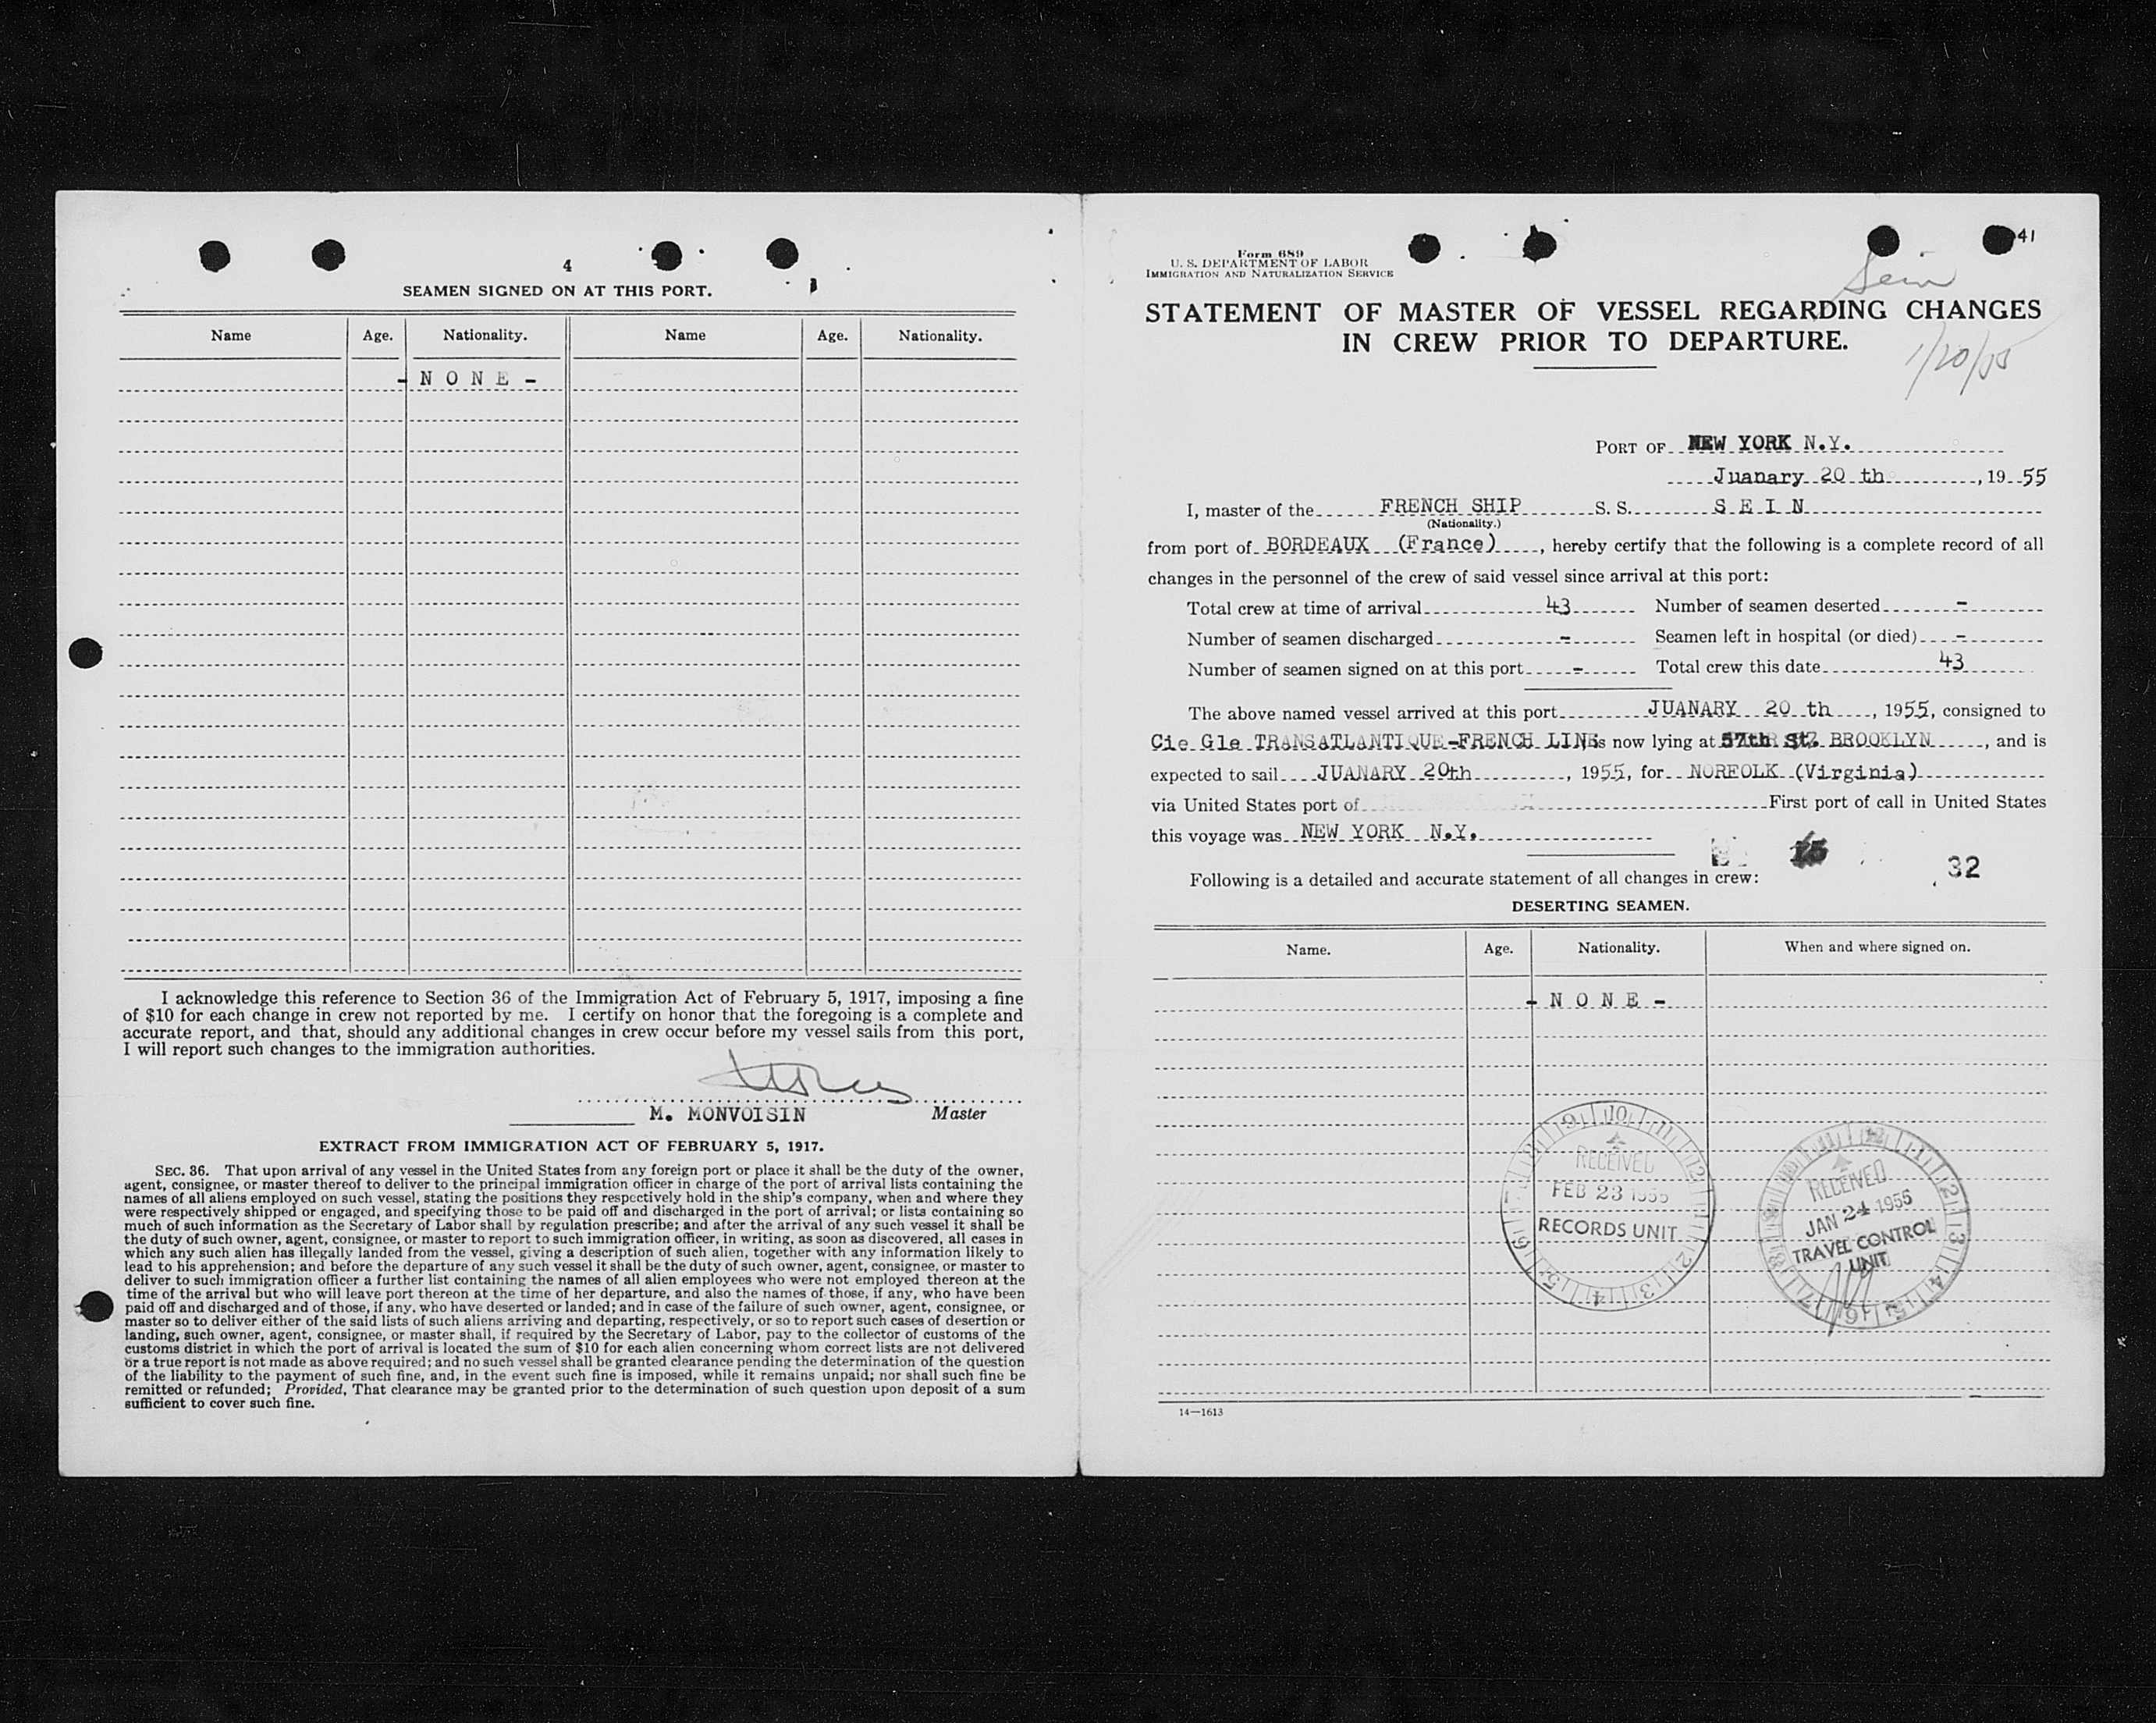 4
SEAMEN SIGNED ON AT THIS PORT.
Name Age. Nationality. Name Age. Nationality.
- N O N E -
I acknowledge this reference to Section 36 of the Immigration Act of February 5, 1917, imposing a fine
of $10 for each change in crew not reported by me. I certify on honor that the foregoing is a complete and
accurate report, and that, should any additional changes in crew occur before my vessel sails from this port,
I will report such changes to the immigration authorities.
M. MONVOISIN Master
EXTRACT FROM IMMIGRATION ACT OF FEBRUARY 5, 1917.
SEC. 36. That upon arrival of any vessel in the United States from any foreign port or place it shall be the duty of the owner,
agent, consignee, or master thereof to deliver to the principal immigration officer in charge of the port of arrival lists containing the
names of all aliens employed on such vessel, stating the positions they respectively hold in the ship's company, when and where they
were respectively shipped or engaged, and specifying those to be paid off and discharged in the port of arrival; or lists containing so
much of such information as the Secretary of Labor shall by regulation prescribe; and after the arrival of any such vessel it shall be
the duty of such owner, agent, consignee, or master to report to such immigration officer, in writing, as soon as discovered, all cases in
which any such alien has illegally landed from the vessel, giving a description of such alien, together with any information likely to
lead to his apprehension; and before the departure of any such vessel it shall be the duty of such owner, agent, consignee, or master to
deliver to such immigration officer a further list containing the names of all alien employees who were not employed thereon at the
time of the arrival but who will leave port thereon at the time of her departure, and also the names of those, if any, who have been
paid off and discharged and of those, if any, who have deserted or landed; and in case of the failure of such owner, agent, consignee, or
master so to deliver either of the said lists of such aliens arriving and departing, respectively, or so to report such cases of desertion or
landing, such owner, agent, consignee, or master shall, if required by the Secretary of Labor, pay to the collector of customs of the
customs district in which the port of arrival is located the sum of $10 for each alien concerning whom correct lists are not delivered
or a true report is not made as above required; and no such vessel shall be granted clearance pending the determination of the question
of the liability to the payment of such fine, and, in the event such fine is imposed, while it remains unpaid; nor shall such fine be
remitted or refunded; Provided, That clearance may be granted prior to the determination of such question upon deposit of a sum
sufficient to cover such fine.
41
Form 689
U. S. DEPARTMENT OF LABOR
IMMIGRATION AND NATURALIZATION SERVICE
Sein
STATEMENT OF MASTER OF VESSEL REGARDING CHANGES
IN CREW PRIOR TO DEPARTURE.
1/20/55
PORT OF NEW YORK N.Y.
Juanary 20 th, 19 55
I, master of the FRENCH SHIP S. S. S E I N
(Nationality.)
from port of BORDEAUX (France), hereby certify that the following is a complete record of all
changes in the personnel of the crew of said vessel since arrival at this port:
Total crew at time of arrival 43 Number of seamen deserted -
Number of seamen discharged - Seamen left in hospital (or died) -
Number of seamen signed on at this port - Total crew this date 43
The above named vessel arrived at this port JUANARY 20 th, 1955, consigned to
Cie Gle TRANSATLANTIQUE-FRENCH LINE is now lying at 57th St. BROOKLYN, and is
expected to sail JUANARY 20th, 1955, for NORFOLK (Virginia)
via United States port of First port of call in United States
this voyage was NEW YORK N.Y.
15
32
Following is a detailed and accurate statement of all changes in crew:
DESERTING SEAMEN.
Name. Age. Nationality. When and where signed on.
- N O N E -
RECEIVED
FEB 23 1955
RECORDS UNIT
RECEIVED
JAN 24 1955
TRAVEL CONTROL
UNIT
14—1613